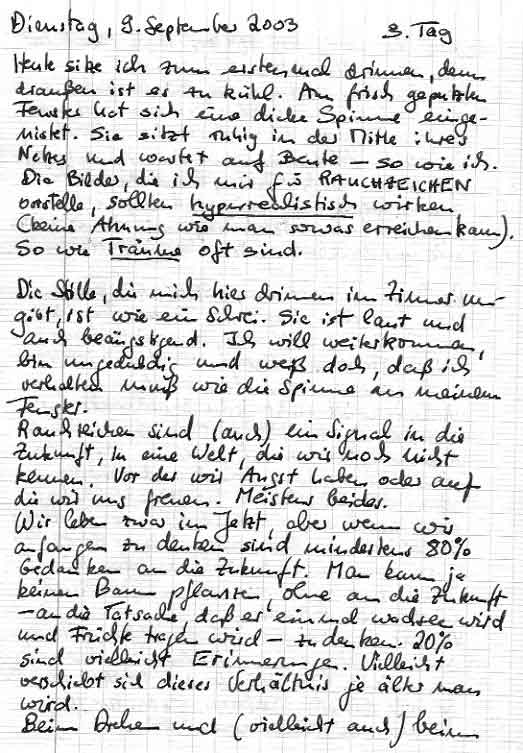 Dienstag, 9. September 2003 3. Tag
Heute sitze ich zum erstenmal drinnen, denn
draußen ist es zu kühl. Am frisch geputzten
Fenster hat sich eine dicke Spinne einge-
nistet. Sie sitzt ruhig in der Mitte ihres
Netzes und wartet auf Beute – so wie ich.
Die Bilder, die ich mir für RAUCHZEICHEN
vorstelle, sollten hyperrealistisch wirken
(keine Ahnung wie man sowas erreichen kann).
So wie Träume oft sind.
Die Stille, die mich hier drinnen im Zimmer um-
gibt, ist wie ein Schrei. Sie ist laut und
auch beängstigend. Ich will weiterkommen,
bin ungeduldig und weiß doch, daß ich
verhalten muß wie die Spinne an meinem
Fenster.
Rauchzeichen sind (auch) ein Signal in die
Zukunft, in eine Welt, die wir noch nicht
kennen. Vor der wir Angst haben oder auf
die wir uns freuen. Meistens beides.
Wir leben zwar im Jetzt, aber wenn wir
anfangen zu denken sind mindestens 80%
Gedanken an die Zukunft. Man kann ja
keinen Baum pflanzen, ohne an die Zukunft
– an die Tatsache, daß er einmal wachsen wird
und Früchte tragen wird – zu denken. 20%
sind vielleicht Erinnerungen. Vielleicht
verschiebt sich dieses Verhältnis je älter man
wird.
Beim Drehen und (vielleicht auch) beim